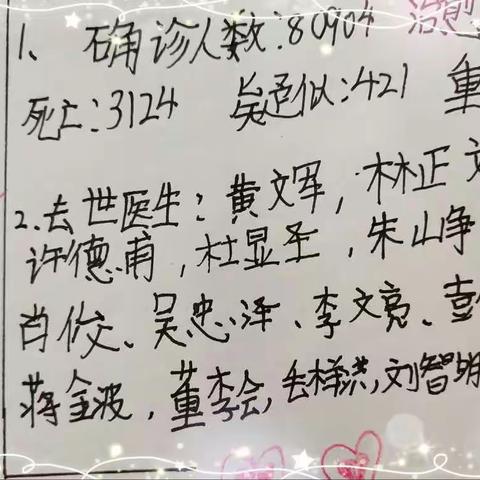 1、确诊人数:80904 治愈
死亡:3124 疑似:421 重
2.去世医生:黄文军,林正文
许德甫,杜显圣,朱峥
肖俊、吴忠泽、李文亮、彭
蒋金波,董李会,毛样洪,刘智明